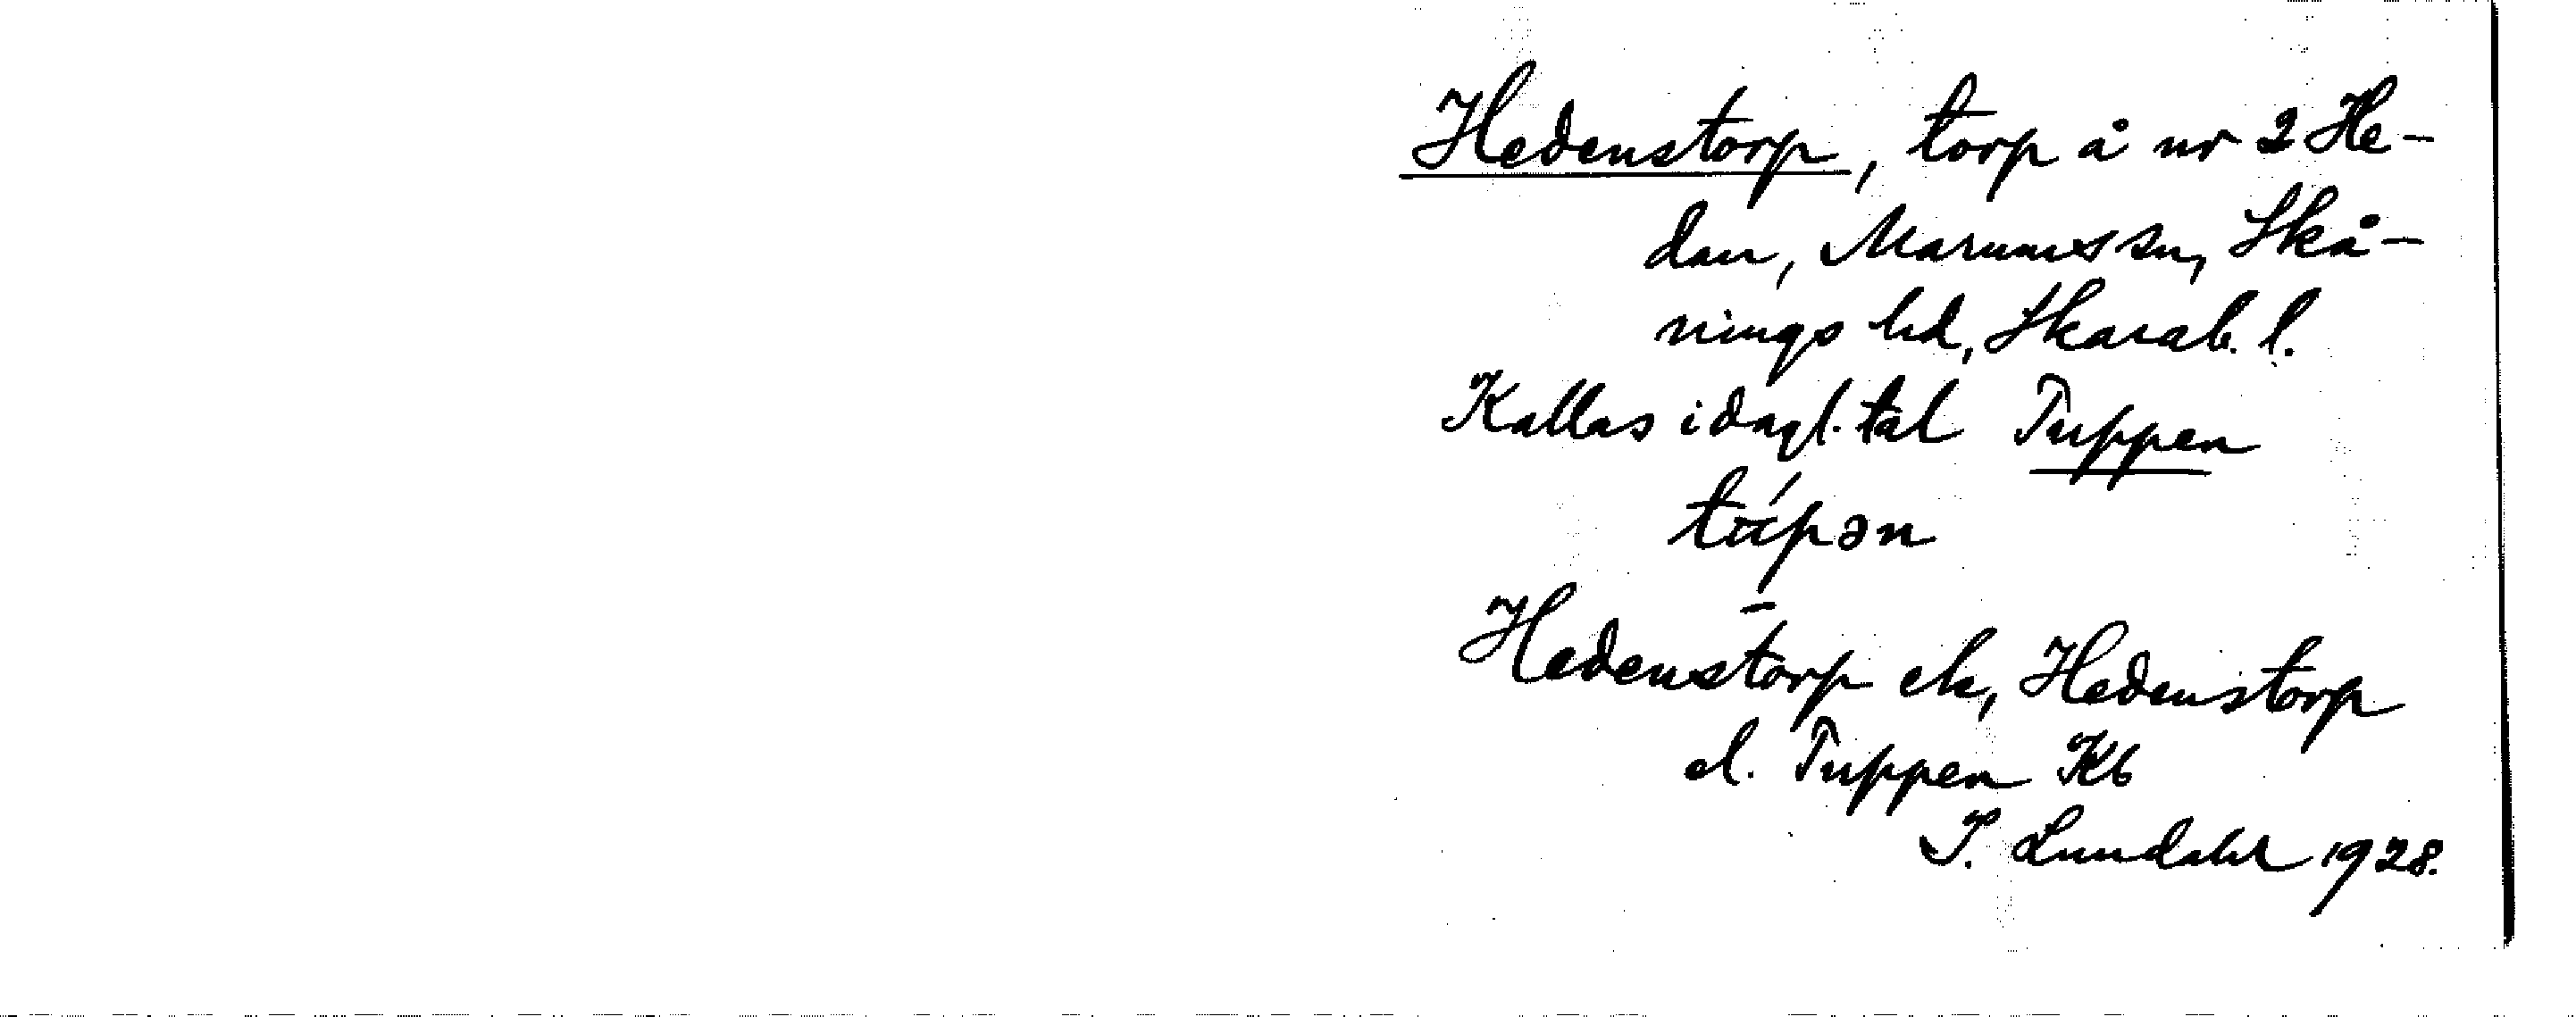 Hedenstorp, torp å nr 2 He-
dan, Marums sn, Skå-
nings hd, Skarab. l.
Kallas i dagl. tal Tuppen
túpən
Hedenstorp ek, Hedenstorp
el. Tuppen Kb
I. Lundahl 1928.